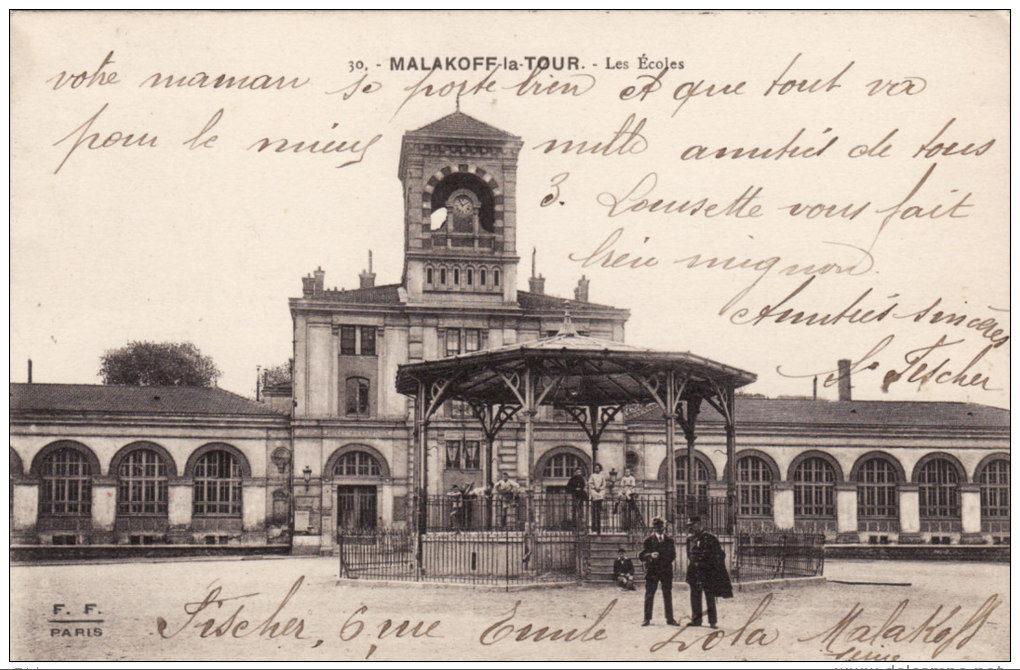 30. - MALAKOFF-la-TOUR. - Les Écoles
votre maman se porte bien et que tout va
pour le mieux mille amitiés de tous
3. Lousette vous fait
bien mignon.
Amitiés sincères
S. Fescher
F. F.
PARIS
Fischer, 6, rue Emile Zola Malakoff
Seine